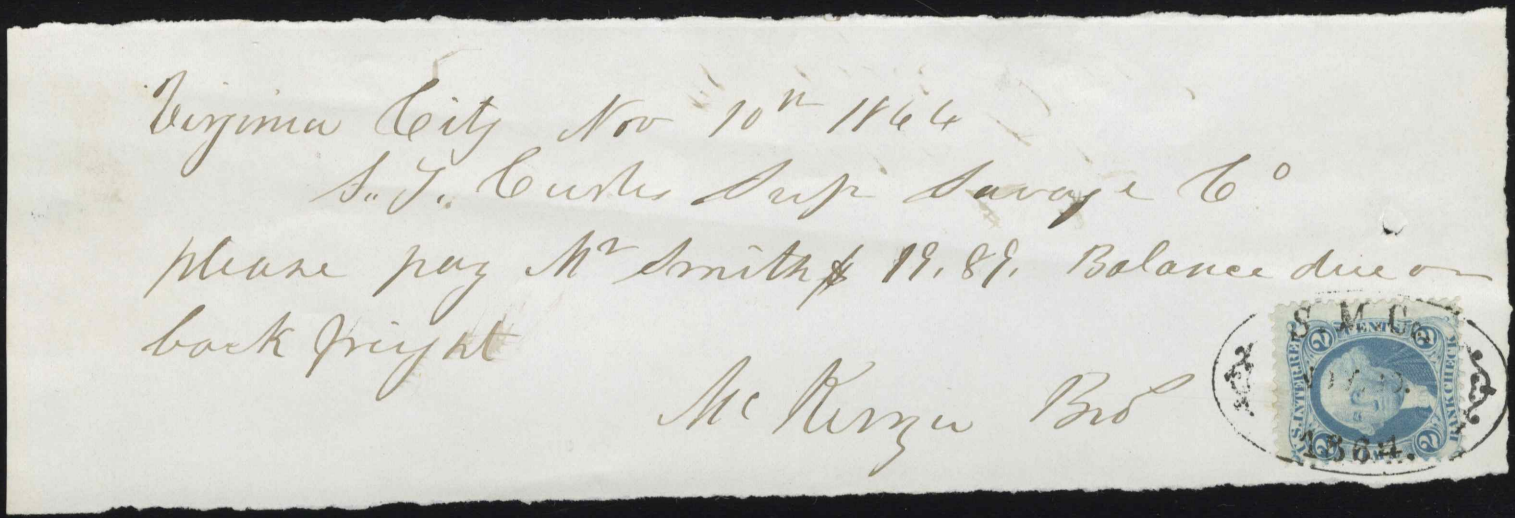 Virginia City Nov 10th 1864
S. T. Curtis Sup Savage Co
please pay Mr Smith $ 19.89. Balance due on
back freight
McKenzie Bro
S. M. Co
1864.
U.S. INTER. REV.
BANK CHECK
2 CENTS 2
2 2